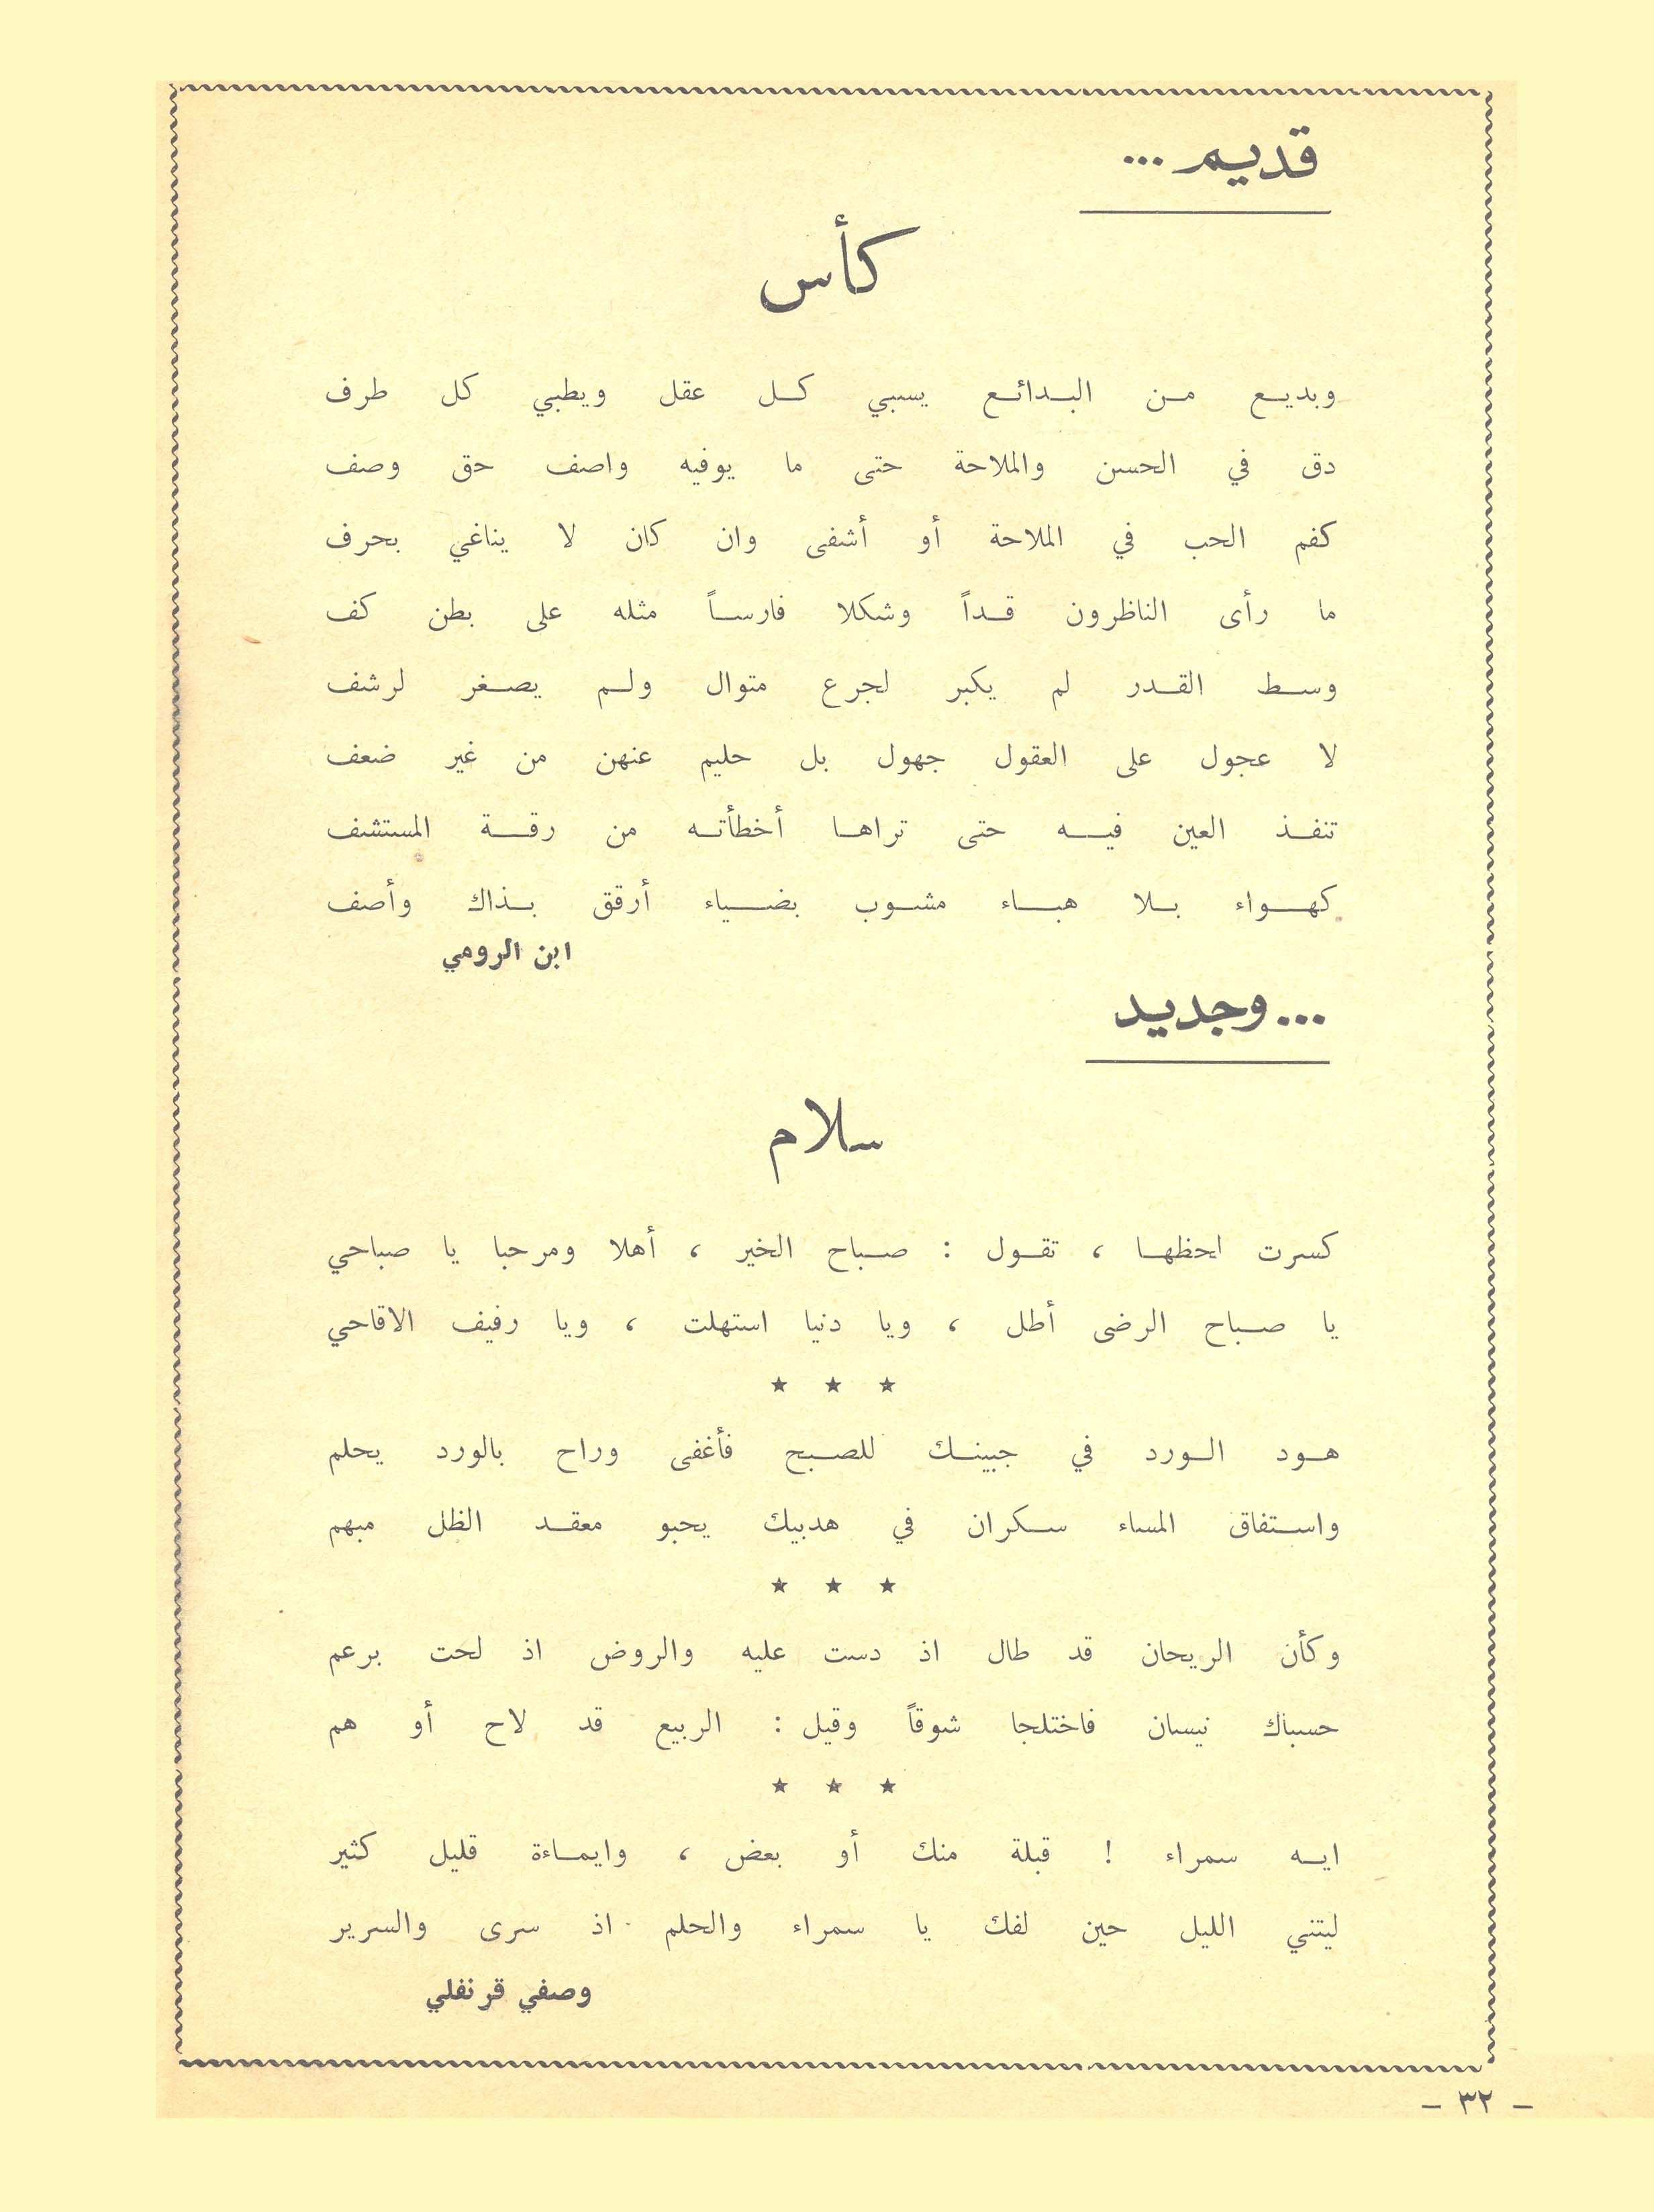 قديم ...
كأس
وبديع من البدائع يسبي كل عقل ويطبي كل طرف
دق في الحسن والملاحة حتى ما يوفيه واصف حق وصف
كفم الحب في الملاحة أو أشفى وان كان لا يناغي بحرف
ما رأى الناظرون قداً وشكلا فارساً مثله على بطن كف
وسط القدر لم يكبر لجرع متوال ولم يصغر لرشف
لا عجول على العقول جهول بل حليم عنهن من غير ضعف
تنفذ العين فيه حتى تراها أخطأته من رقة المستشف
كهواء بلا هباء مشوب بضياء أرقق بذاك وأصف
ابن الرومي
... وجديد
سلام
كسرت لحظها ، تقول : صباح الخير ، أهلا ومرحبا يا صباحي
يا صباح الرضى أطل ، ويا دنيا استهلت ، ويا رفيف الاقاحي
★ ★ ★
هود الورد في جبينك للصبح فأغفى وراح بالورد يحلم
واستفاق المساء سكران في هدبيك يحبو معقد الظل مبهم
★ ★ ★
وكأن الريحان قد طال اذ دست عليه والروض اذ لحت برعم
حسباك نيسان فاختلجا شوقاً وقيل : الربيع قد لاح أو هم
★ ★ ★
ايه سمراء ! قبلة منك أو بعض ، وايماءة قليل كثير
ليتني الليل حين لفك يا سمراء والحلم اذ سرى والسرير
وصفي قرنفلي
– ٣٢ –